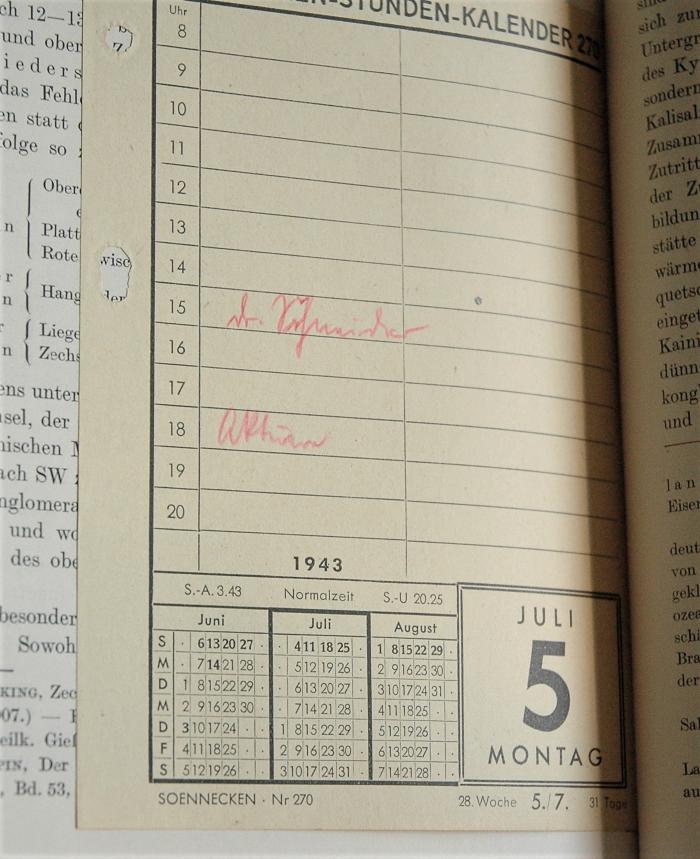 ch 12—13
und ober
ieders
das Fehl
en statt
folge so
Ober
n Platt
Rote
r
n Hang
r Liege
n Zechs
ens unter
sel, der
nischen M
ach SW
nglomera
und wo
des obe
besonder
Sowoh
KING, Zec
07.) —
eilk. Gief
PIN, Der
, Bd. 53,
wisc
der
EN-STUNDEN-KALENDER 270
Uhr
8
9
10
11
12
13
14
15 dr. Schneider
16
17
18
19
20
1943
S.-A. 3.43 Normalzeit S.-U 20.25
Juni Juli August
S · 6 13 20 27 · · 4 11 18 25 · 1 8 15 22 29 ·
M · 7 14 21 28 · · 5 12 19 26 · 2 9 16 23 30 ·
D 1 8 15 22 29 · · 6 13 20 27 · 3 10 17 24 31 ·
M 2 9 16 23 30 · · 7 14 21 28 · 4 11 18 25 · ·
D 3 10 17 24 · · 1 8 15 22 29 · 5 12 19 26 · ·
F 4 11 18 25 · · 2 9 16 23 30 · 6 13 20 27 · ·
S 5 12 19 26 · · 3 10 17 24 31 · 7 14 21 28 · ·
JULI
5
MONTAG
SOENNECKEN · Nr 270 28. Woche 5./7. 31 Tage
sich zur
Untergr
des Ky
sondern
Kalisal
Zusam
Zutritt
der Z
bildun
stätte
wärme
quetsc
einget
Kaini
dünn
kong
und
lan
Eisen
deut
von
gekl
ozea
schi
Bra
der
Sal
La
au